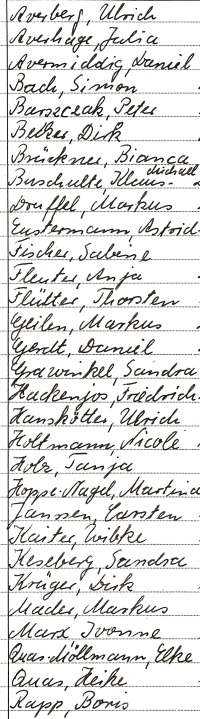 Averberg, Ulrich
Averhage, Julia
Avermiddig, Daniel
Bach, Simon
Barszczak, Peter
Becker, Dirk
Brückner, Bianca
Buschulte, Klaus-Michael
Druffel, Markus
Eustermann, Astrid
Fischer, Sabine
Fleuter, Anja
Flütter, Thorsten
Geilen, Markus
Gerdt, Daniel
Grawinkel, Sandra
Hackenjos, Friedrich
Hanskötter, Ulrich
Holtmann, Nicole
Holz, Tanja
Hoppe-Nagel, Martina
Janssen, Carsten
Kaiter, Wibke
Keseberg, Sandra
Krüger, Dirk
Mader, Markus
Marx Yvonne
Quas-Möllmann, Elke
Quas, Heike
Rapp, Boris